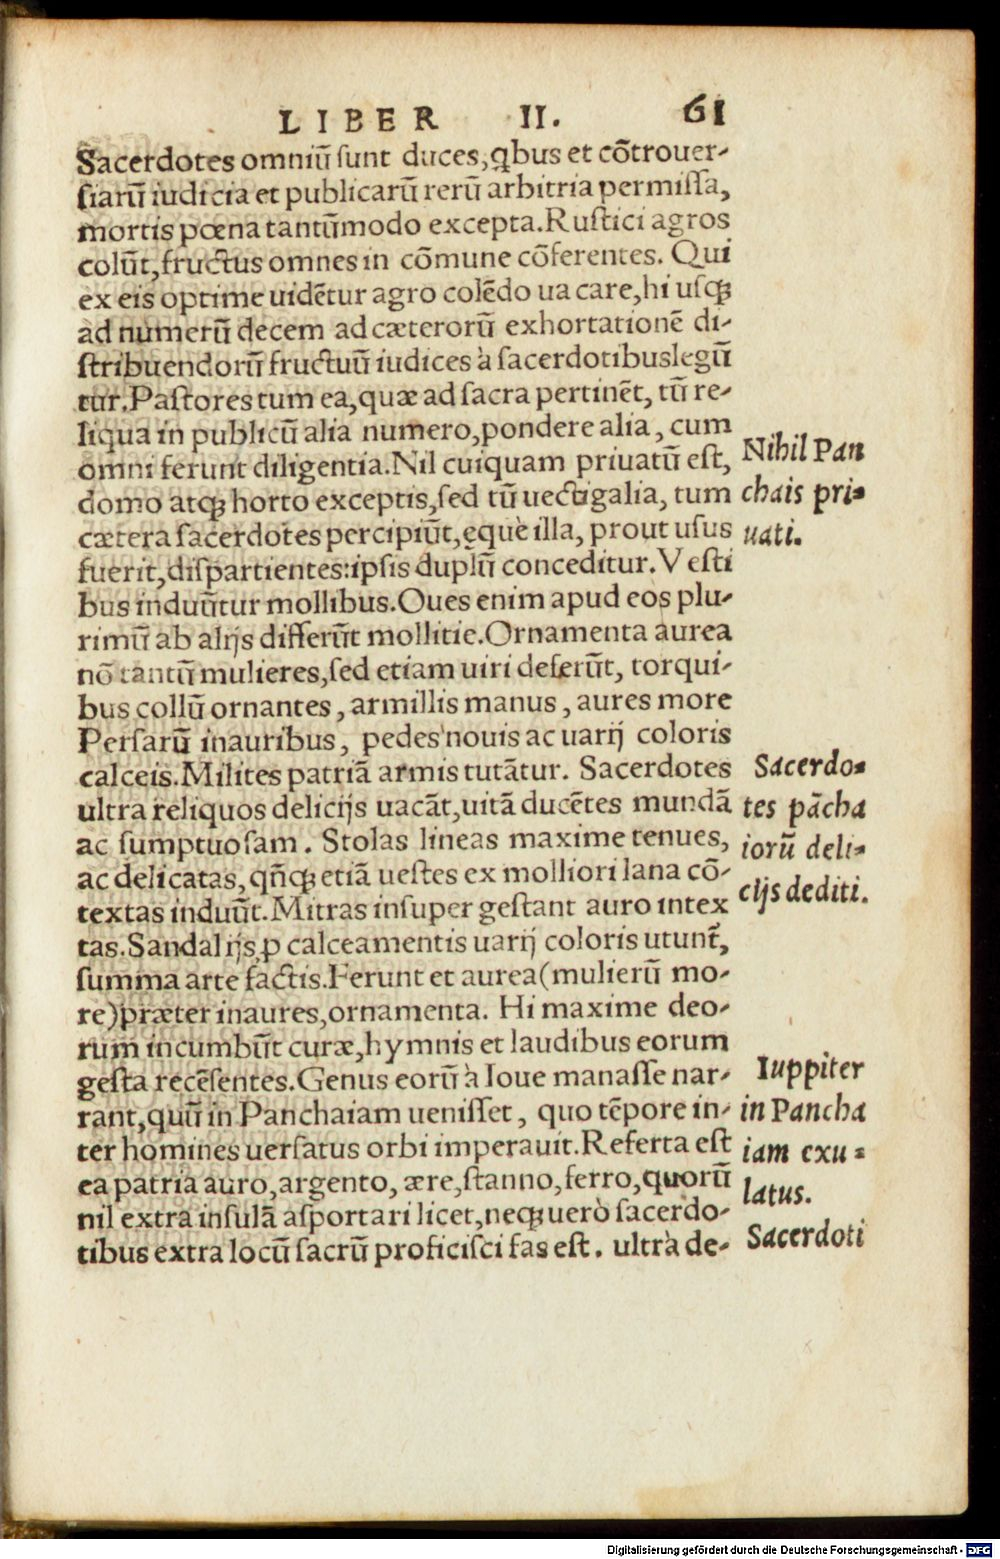 LIBER II. 61
Sacerdotes omniũ sunt duces, qbus et cõtrouer-
siarũ iudicia et publicarũ rerũ arbitria permissa,
mortis pœna tantũmodo excepta. Rustici agros
colũt, fructus omnes in cõmune cõferentes. Qui
ex eis optime uidẽtur agro colẽdo uacare, hi usqꝫ
ad numerũ decem ad cæterorũ exhortationẽ di-
stribuendorũ fructuũ iudices à sacerdotibus legũ
tur. Pastores tum ea, quæ ad sacra pertinẽt, tũ re-
liqua in publicũ alia numero, pondere alia, cum
omni ferunt diligentia. Nil cuiquam priuatũ est,
domo atqꝫ horto exceptis, sed tũ uectigalia, tum
cætera sacerdotes percipiũt, ęquè illa, prout usus
fuerit, dispartientes: ipsis duplũ conceditur. Vesti
bus induũtur mollibus. Oues enim apud eos plu-
rimũ ab alijs differũt mollitie. Ornamenta aurea
nõ tantũ mulieres, sed etiam uiri deferũt, torqui-
bus collũ ornantes, armillis manus, aures more
Persarũ inauribus, pedes nouis ac uarij coloris
calceis. Milites patriã armis tutãtur. Sacerdotes
ultra reliquos delicijs uacãt, uitã ducẽtes mundã
ac sumptuosam. Stolas lineas maxime tenues,
ac delicatas, qñqꝫ etiã uestes ex molliori lana cõ-
textas induũt. Mitras insuper gestant auro intex
tas. Sandalijs ꝓ calceamentis uarij coloris utunt̃,
summa arte factis. Ferunt et aurea (mulierũ mo-
re) præter inaures, ornamenta. Hi maxime deo-
rum incumbũt curæ, hymnis et laudibus eorum
gesta recẽsentes. Genus eorũ à Ioue manasse nar-
rant, quũ in Panchaiam uenisset, quo tẽpore in-
ter homines uersatus orbi imperauit. Referta est
ea patria auro, argento, ære, stanno, ferro, quorũ
nil extra insulã asportari licet, neqꝫ uerò sacerdo-
tibus extra locũ sacrũ proficisci fas est. ultrà de-
Nihil Pan
chais pri-
uati.
Sacerdo-
tes pãcha
iorũ deli-
cijs dediti.
Iuppiter
in Pancha
iam exu-
latus.
Sacerdoti
Digitalisierung gefördert durch die Deutsche Forschungsgemeinschaft - DFG